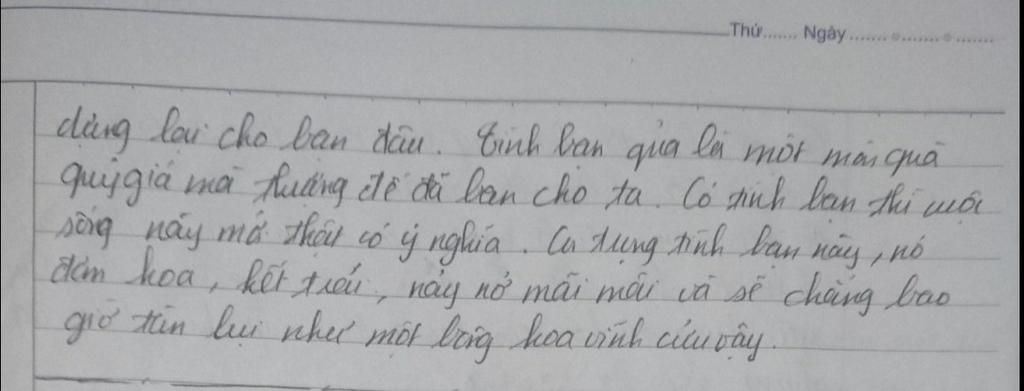 Thứ....... Ngày ........................
dùng lại cho bạn đâu. Tình bạn quả là một món quà
quý giá mà thượng đế đã ban cho ta. Có tình bạn thì cuộc
sống này mới thật có ý nghĩa. Cứ tựng tình bạn này, nó
đâm hoa, kết trái, nảy nở mãi mãi và sẽ chẳng bao
giờ tàn lụi như một bông hoa vĩnh cửu vậy.